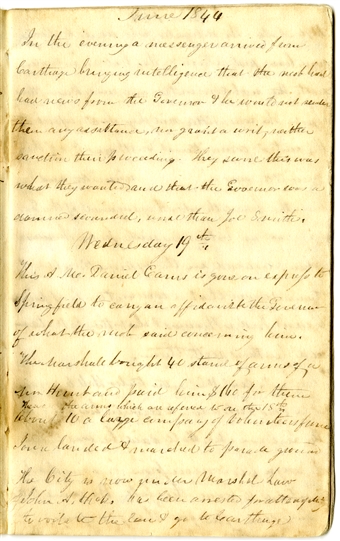 June 1844
In the evening a messenger arrived from
Carthage bringing intelligence that the mob had
had news from the Governor & he would not render
them any assistance, nor grant a writ, neither
sanction their proceeding. They swore this was
what they wanted and that the Governor was a
damned scoundrel, worse than Joe Smith.
Wednesday 19th
This A Mc. Daniel Cairns is gone on express to
Springfield to carry an affidavit to the Governor
of what the mob said concerning him.
The Marshall bought 40 stand of arms of a
Mr and paid him $ for them
These the arms which are refered to on the 18th
About 10 a large company of Volunteers from
Iowa landed & marched to parade ground
The City is now under Marshal Law
John A. Hicks has been arrested for attempting
to work to the & go to Carthage